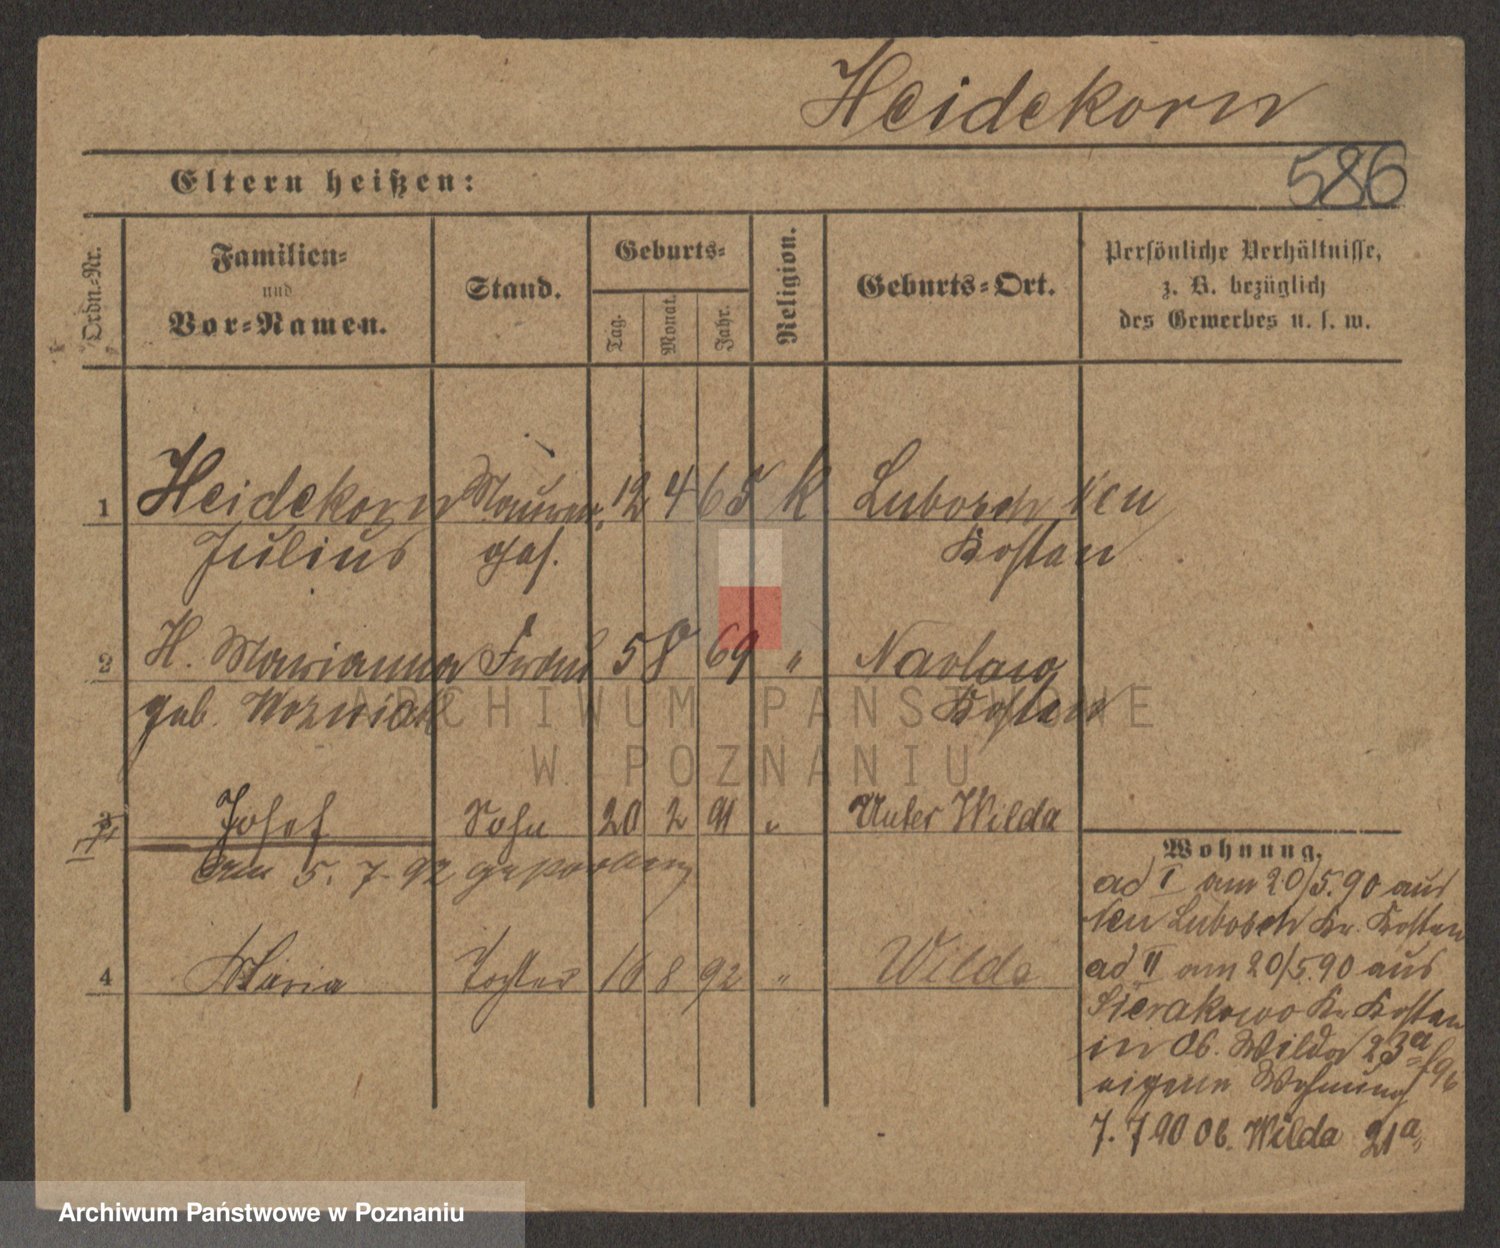 Heidekorn
586
Eltern heißen:
Ordn.-Nr.
Familien-
und
Vor-Namen.
Stand.
Geburts-
Tag.
Monat.
Jahr.
Religion.
Geburts-Ort.
Persönliche Verhältnisse,
z. B. bezüglich
des Gewerbes u. s. w.
1 Heidekorn Maurer 12 4 65 k Lubosch neu
Julius ges. Kosten
2 H. Marianna Frau 5 8 69 " Kosten
geb. Wozniak
ARCHIWUM PAŃSTWOWE
W POZNANIU
3 Josef Sohn 20 2 91 " Unter Wilda
am 5. 7. 92 gestorben
4 Maria Tochter 8 92 " Wilda
Wohnung.
ad I am 20/5.90 aus
Neu Lubosch Kr. Kosten
ad II am 20/5.90 aus
Sierakowo Kr. Kosten
in Ob. Wilda 23a
eigene Wohnung
7. 7 90 Ob. Wilda 21a
Archiwum Państwowe w Poznaniu